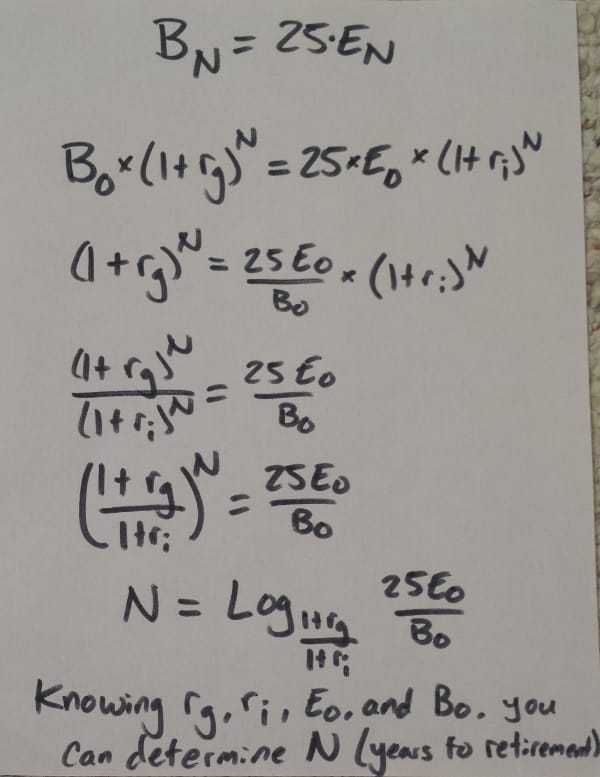 B_N = 25·E_N
B_0 × (1+r_g)^N = 25×E_0 × (1+r_i)^N
(1+r_g)^N = 25E_0/B_0 × (1+r_i)^N
(1+r_g)^N/(1+r_i)^N = 25E_0/B_0
((1+r_g)/(1+r_i))^N = 25E_0/B_0
N = Log_((1+r_g)/(1+r_i)) 25E_0/B_0
Knowing r_g, r_i, E_0, and B_0, you
can determine N (years to retirement)